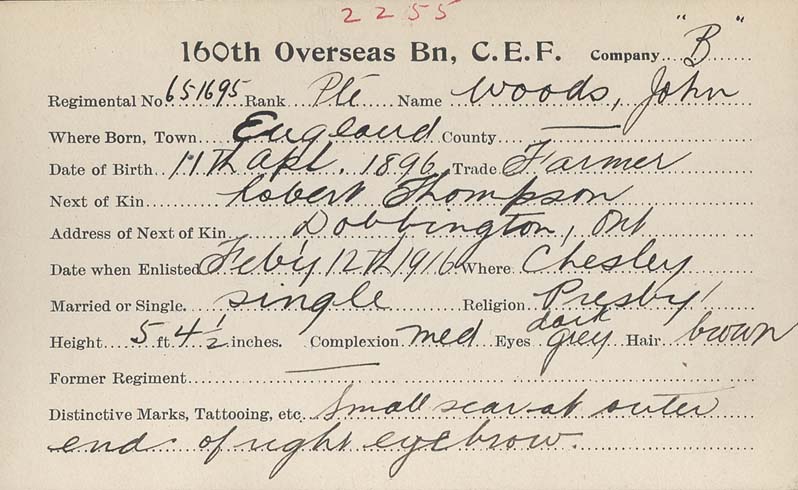 2255
160th Overseas Bn, C.E.F. Company "B"
Regimental No. 651695 Rank Pte Name Woods, John
Where Born, Town England County —
Date of Birth 11th Apl. 1896 Trade Farmer
Next of Kin Robert Thompson
Address of Next of Kin Dobbington, Ont
Date when Enlisted Feb'y 12th 1916 Where Chesley
Married or Single. single Religion Presby'
Height 5 ft 4 1/2 inches. Complexion med Eyes dark grey Hair brown
Former Regiment —
Distinctive Marks, Tattooing, etc. Small scar at outer
end of right eyebrow.